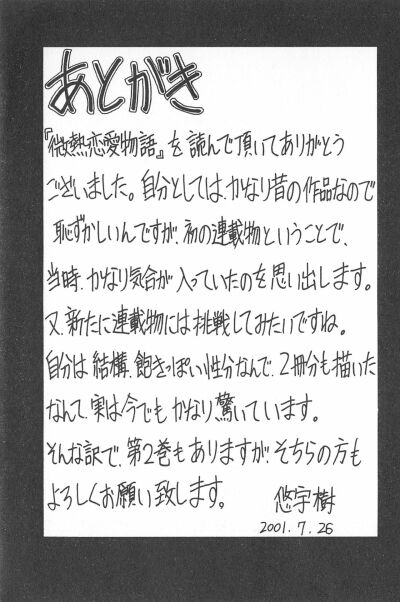 あとがき
『微熱恋愛物語』を読んで頂いてありがとう
ございました。自分としては、かなり昔の作品なので
恥ずかしいんですが、初の連載物ということで、
当時、かなり気合が入っていたのを思い出します。
又、新たに連載物には挑戦してみたいですね。
自分は結構、飽きっぽい性分なんで、2冊分も描いた
なんて、実は今でもかなり驚いています。
そんな訳で、第2巻もありますが、そちらの方も
よろしくお願い致します。
悠宇樹
2001.7.26